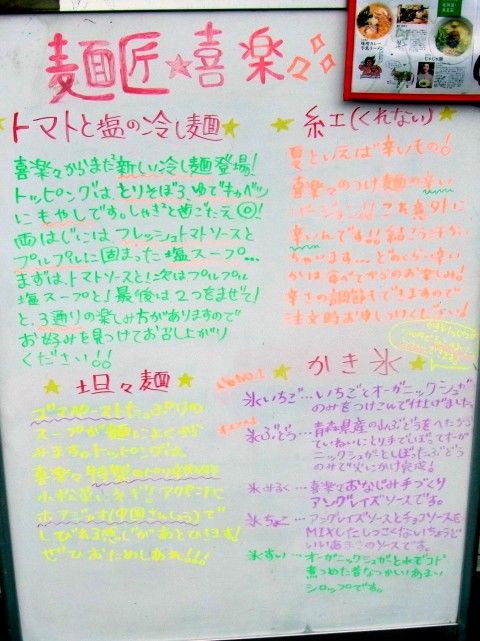 麺匠☆喜楽々
トマトと塩の冷し麺
喜楽々からまた新しい冷し麺登場!
トッピングは、とりそぼろ、ゆでキャベツ
にもやしです。しゃきっと歯ごたえ◎!
両はじにはフレッシュトマトソースと
プルプルに固まった塩スープ…
まずは、トマトソースと!次はプルプル
塩スープと!最後は2つをまぜて!
と、3通りの楽しみ方がありますので
お好みを見つけてお召し上がり
ください!!
紅(くれない)
夏といえば辛いもの!
喜楽々のつけ麺の辛い
バージョン!!これ意外に
辛いんです!!結こう汗かい
ちゃいます…どのくらい辛い
かは食べてからのお楽しみ!
辛さの調節もできますので
注文時お申しつけください!
坦々麺
ゴマペーストたっぷりの
スープが麺によくから
みます。トッピングは、
喜楽々特製の
小松菜にネギ!アクセントに
ホアジャオ(中国さんしょう)で
しびれる感じがあとひきます!
ぜひおためしあれ!!!
かき氷
氷いちご…いちごとオーガニックシュガー
のみをつけこんで仕上げました。
氷ぶどう…青森県産の山ぶどうをへたから
ていねいにとり手でしぼってオーガ
ニックシュガーとしぼったぶどう
のみで火にかけ完成!
氷みるく…喜楽々おなじみ手づくり
アングレイズソースです。
氷ちょこ…アングレイズソースとチョコソースを
MIXしたしつこくないちょうど
いいあまさのソースです。
氷すい…オーガニックシュガーと水でコトコト
煮つめた昔なつかしいあまい
シロップです。